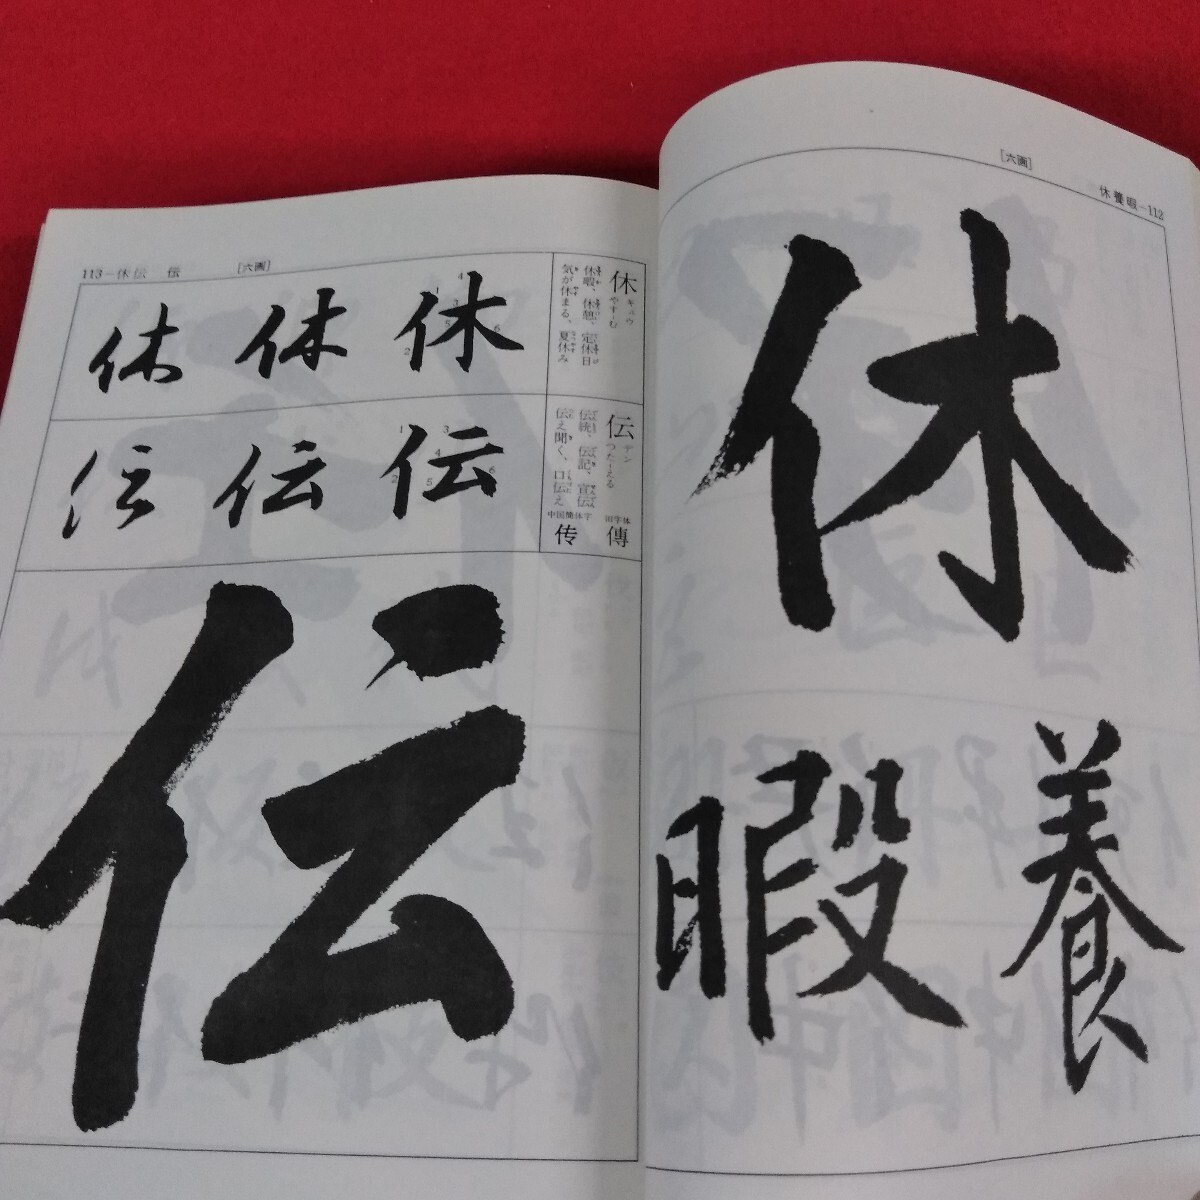 [六画]
休養暇―112
休
養
暇
113―休伝 伝
[六画]
休 キュウ やす―む
休暇、休憩、定休日
気が休まる、夏休み
休 休 休
伝 デン つた―える
伝統、伝記、宣伝
伝え聞く、口伝え
旧字体 傳
中国簡体字 传
伝 伝 伝
伝